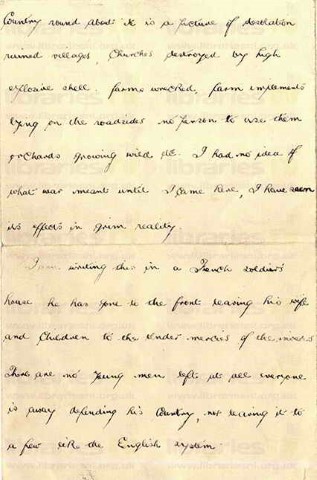 Country round about it is a picture of desolation
ruined villages, Churches destroyed by high
explosive shell. farms wrecked, farm implements
lying on the roadsides no person to use them
orchards growing wild etc. I had no idea of
what war meant until I came here, I have seen
its effects in grim reality.
I am writing this in a French soldiers
house he has gone to the front leaving his wife
and Children to the tender mercies of the invaders
There are no young men left at all everyone
is away defending his Country, not leaving it to
a few like the English system
libraries
www.librariesni.org.uk